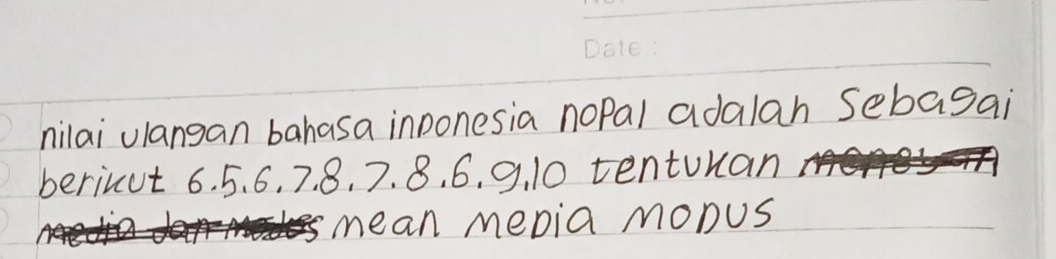 Date :
nilai ulangan bahasa inDonesia nopal adalah Sebagai
berikut 6.5.6.7.8.7.8.6.9.10 tentukan
mean meDia moDus